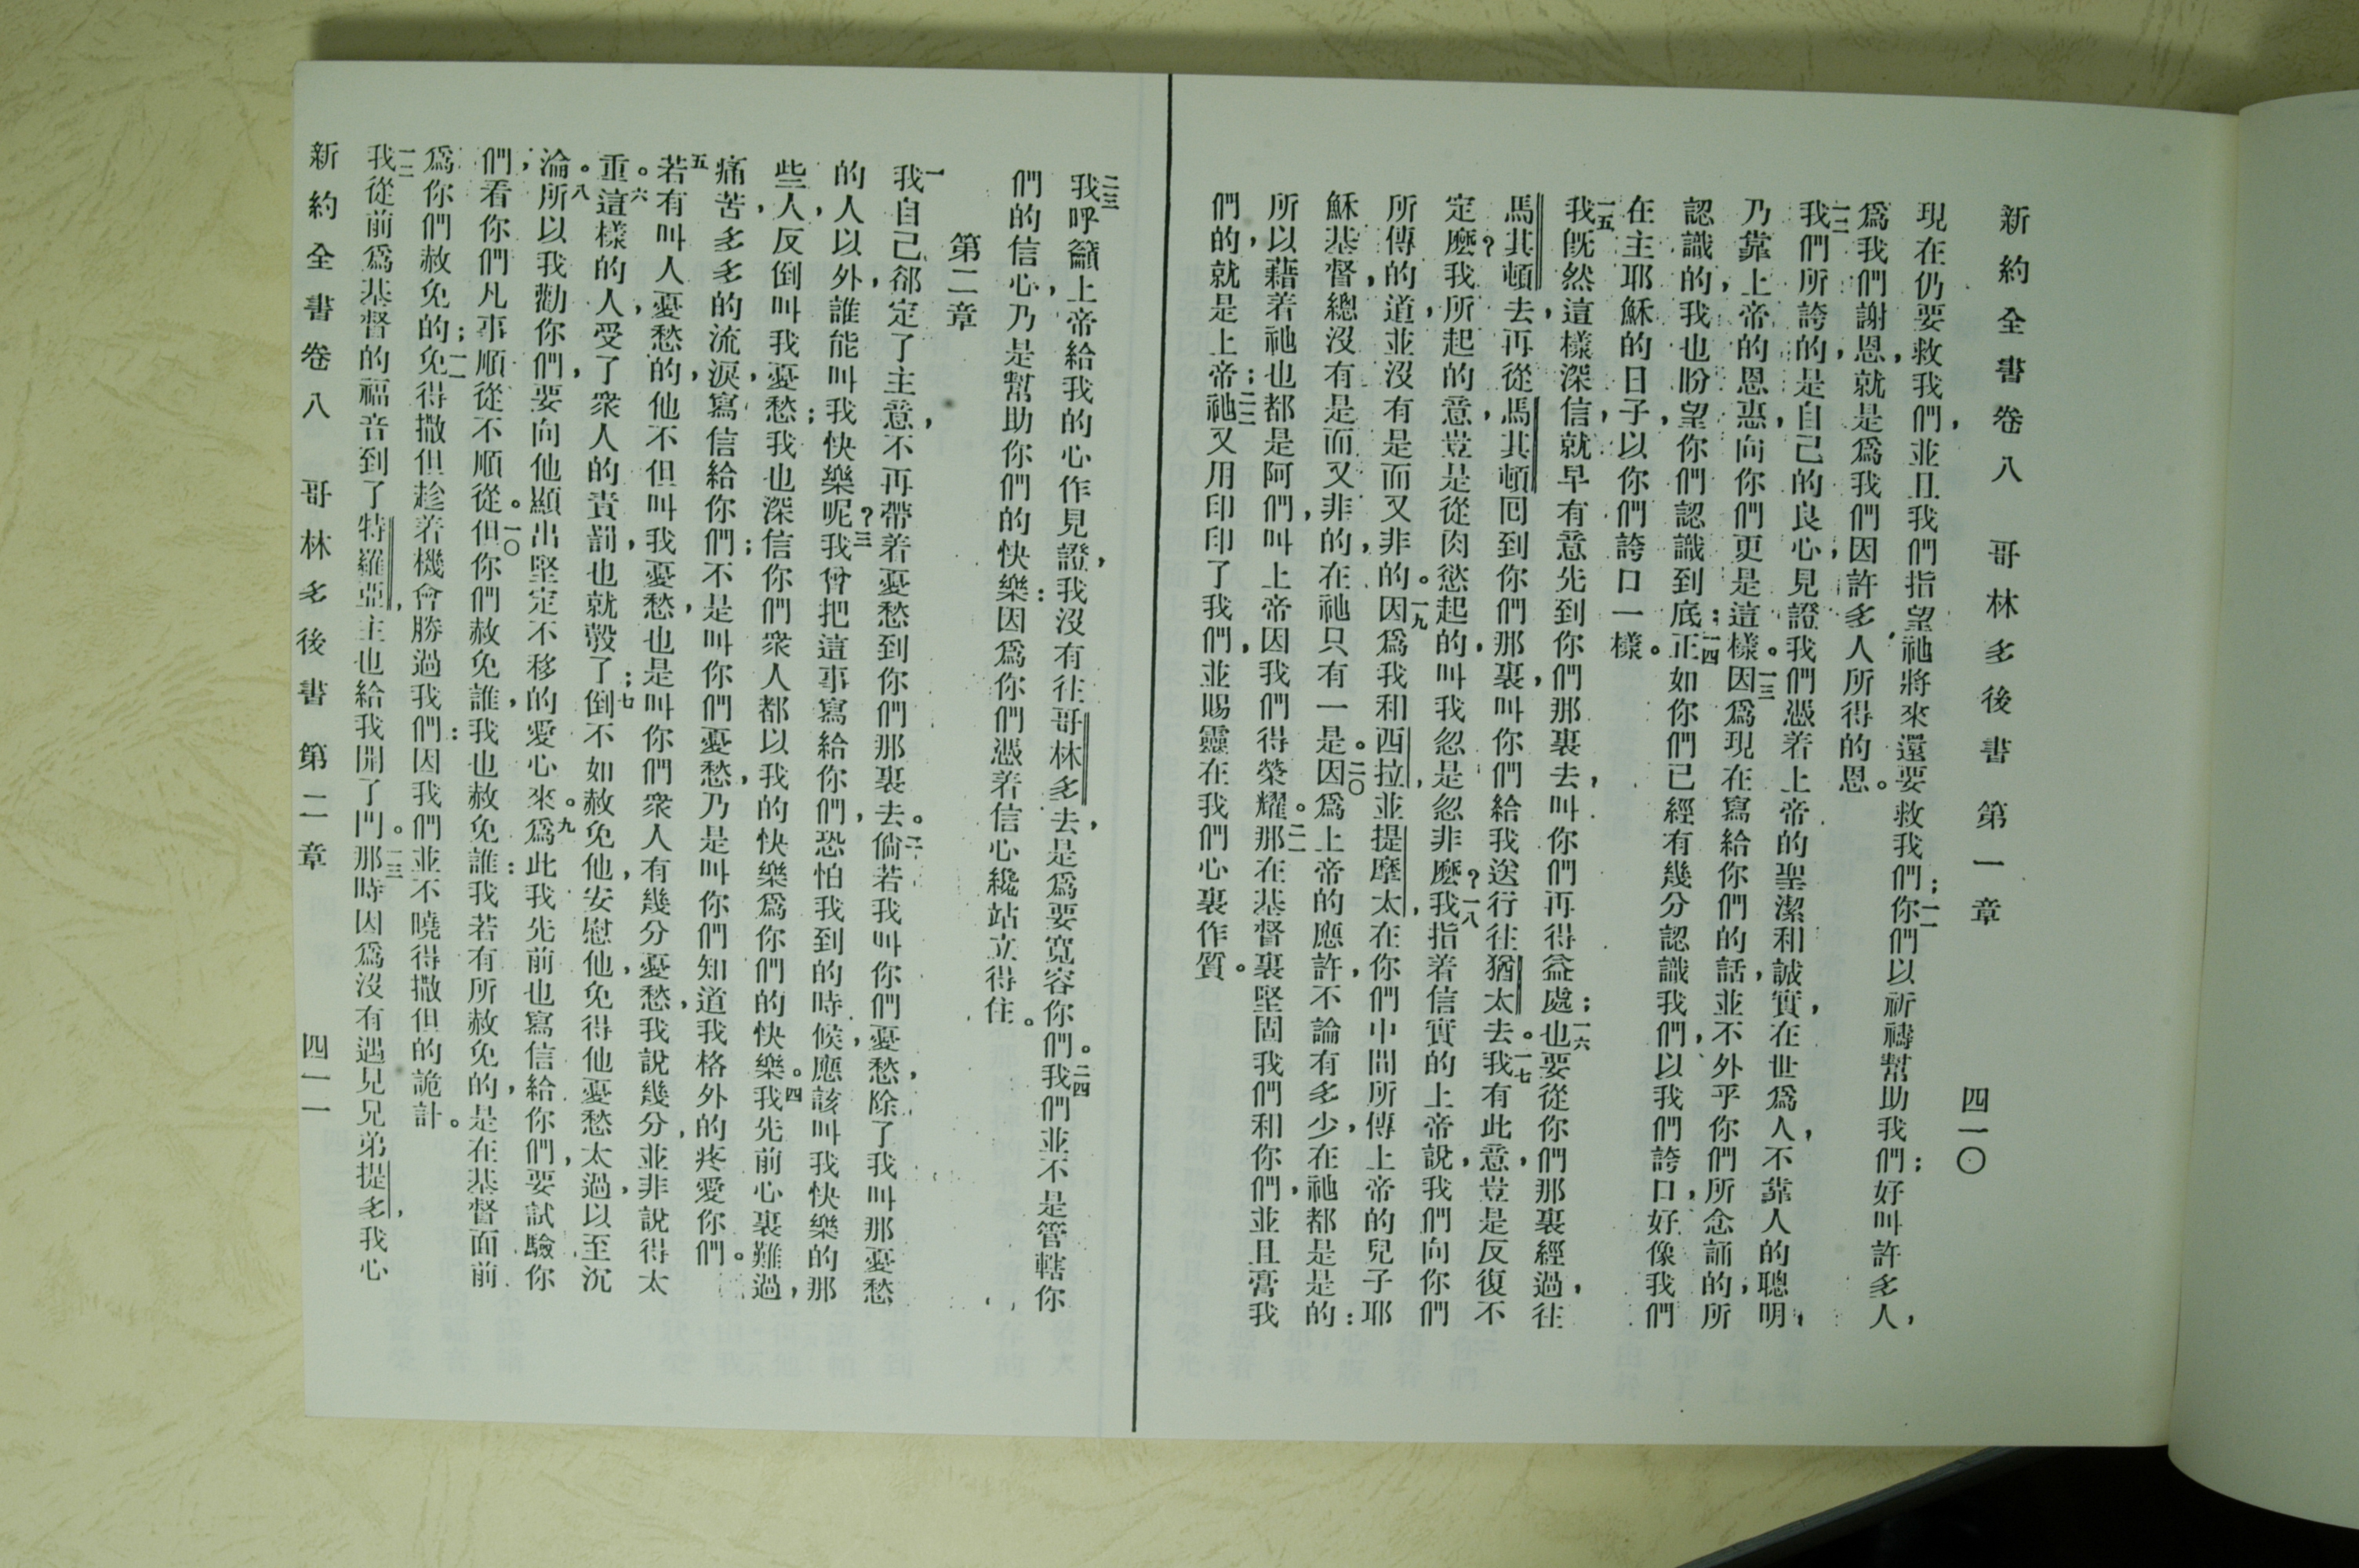 新約全書卷八 哥林多後書 第一章 四一〇
現在仍要救我們，並且我們指望祂將來還要救我們；一一你們以祈禱幫助我們；好叫許多人，
爲我們謝恩，就是爲我們因許多人所得的恩。
一二我們所誇的，是自己的良心，見證我們憑着上帝的聖潔和誠實，在世爲人，不靠人的聰明，
乃靠上帝的恩惠，向你們更是這樣。一三因爲現在寫給你們的話，並不外乎你們所念誦的，所
認識的，我也盼望你們認識到底；一四正如你們已經有幾分認識我們，以我們誇口，好像我們
在主耶穌的日子，以你們誇口一樣。
一五我旣然這樣深信，就早有意先到你們那裏去，叫你們再得益處；一六也要從你們那裏經過，往
馬其頓去，再從馬其頓囘到你們那裏，叫你們給我送行往猶太去。一七我有此意，豈是反復不
定麽？我所起的意，豈是從肉慾起的，叫我忽是忽非麽？一八我指着信實的上帝說，我們向你們
所傳的道，並沒有是而又非的。一九因爲我和西拉，並提摩太，在你們中間所傳上帝的兒子耶
穌基督，總沒有是而又非的，在祂只有一是。二〇因爲上帝的應許，不論有多少，在祂都是是的：
所以藉着祂也都是阿們，叫上帝因我們得榮耀。二一那在基督裏堅固我們和你們，並且膏我
們的，就是上帝；二二祂又用印印了我們，並賜靈在我們心裏作質。
二三我呼籲上帝給我的心作見證，我沒有往哥林多去，是爲要寬容你們。二四我們並不是管轄你
們的信心，乃是幫助你們的快樂：因爲你們憑着信心纔站立得住。
第二章
一我自己郤定了主意，不再帶着憂愁到你們那裏去。二倘若我叫你們憂愁，除了我叫那憂愁
的人以外，誰能叫我快樂呢？三我曾把這事寫給你們，恐怕我到的時候，應該叫我快樂的那
些人，反倒叫我憂愁；我也深信你們衆人都以我的快樂爲你們的快樂。四我先前心裏難過，
痛苦，多多的流淚，寫信給你們；不是叫你們憂愁，乃是叫你們知道我格外的疼愛你們。
五若有叫人憂愁的，他不但叫我憂愁，也是叫你們衆人有幾分憂愁，我說幾分，並非說得太
重。六這樣的人，受了衆人的責罰，也就彀了；七倒不如赦免他，安慰他，免得他憂愁太過，以至沉
淪。八所以我勸你們，要向他顯出堅定不移的愛心來。九爲此我先前也寫信給你們，要試驗你
們，看你們凡事順從不順從。一〇但你們赦免誰，我也赦免誰：我若有所赦免的，是在基督面前
爲你們赦免的；一一免得撒但趁着機會勝過我們：因我們並不曉得撒但的詭計。
一二我從前爲基督的福音到了特羅亞，主也給我開了門。一三那時因爲沒有遇見兄弟提多，我心
新約全書卷八 哥林多後書 第二章 四一一